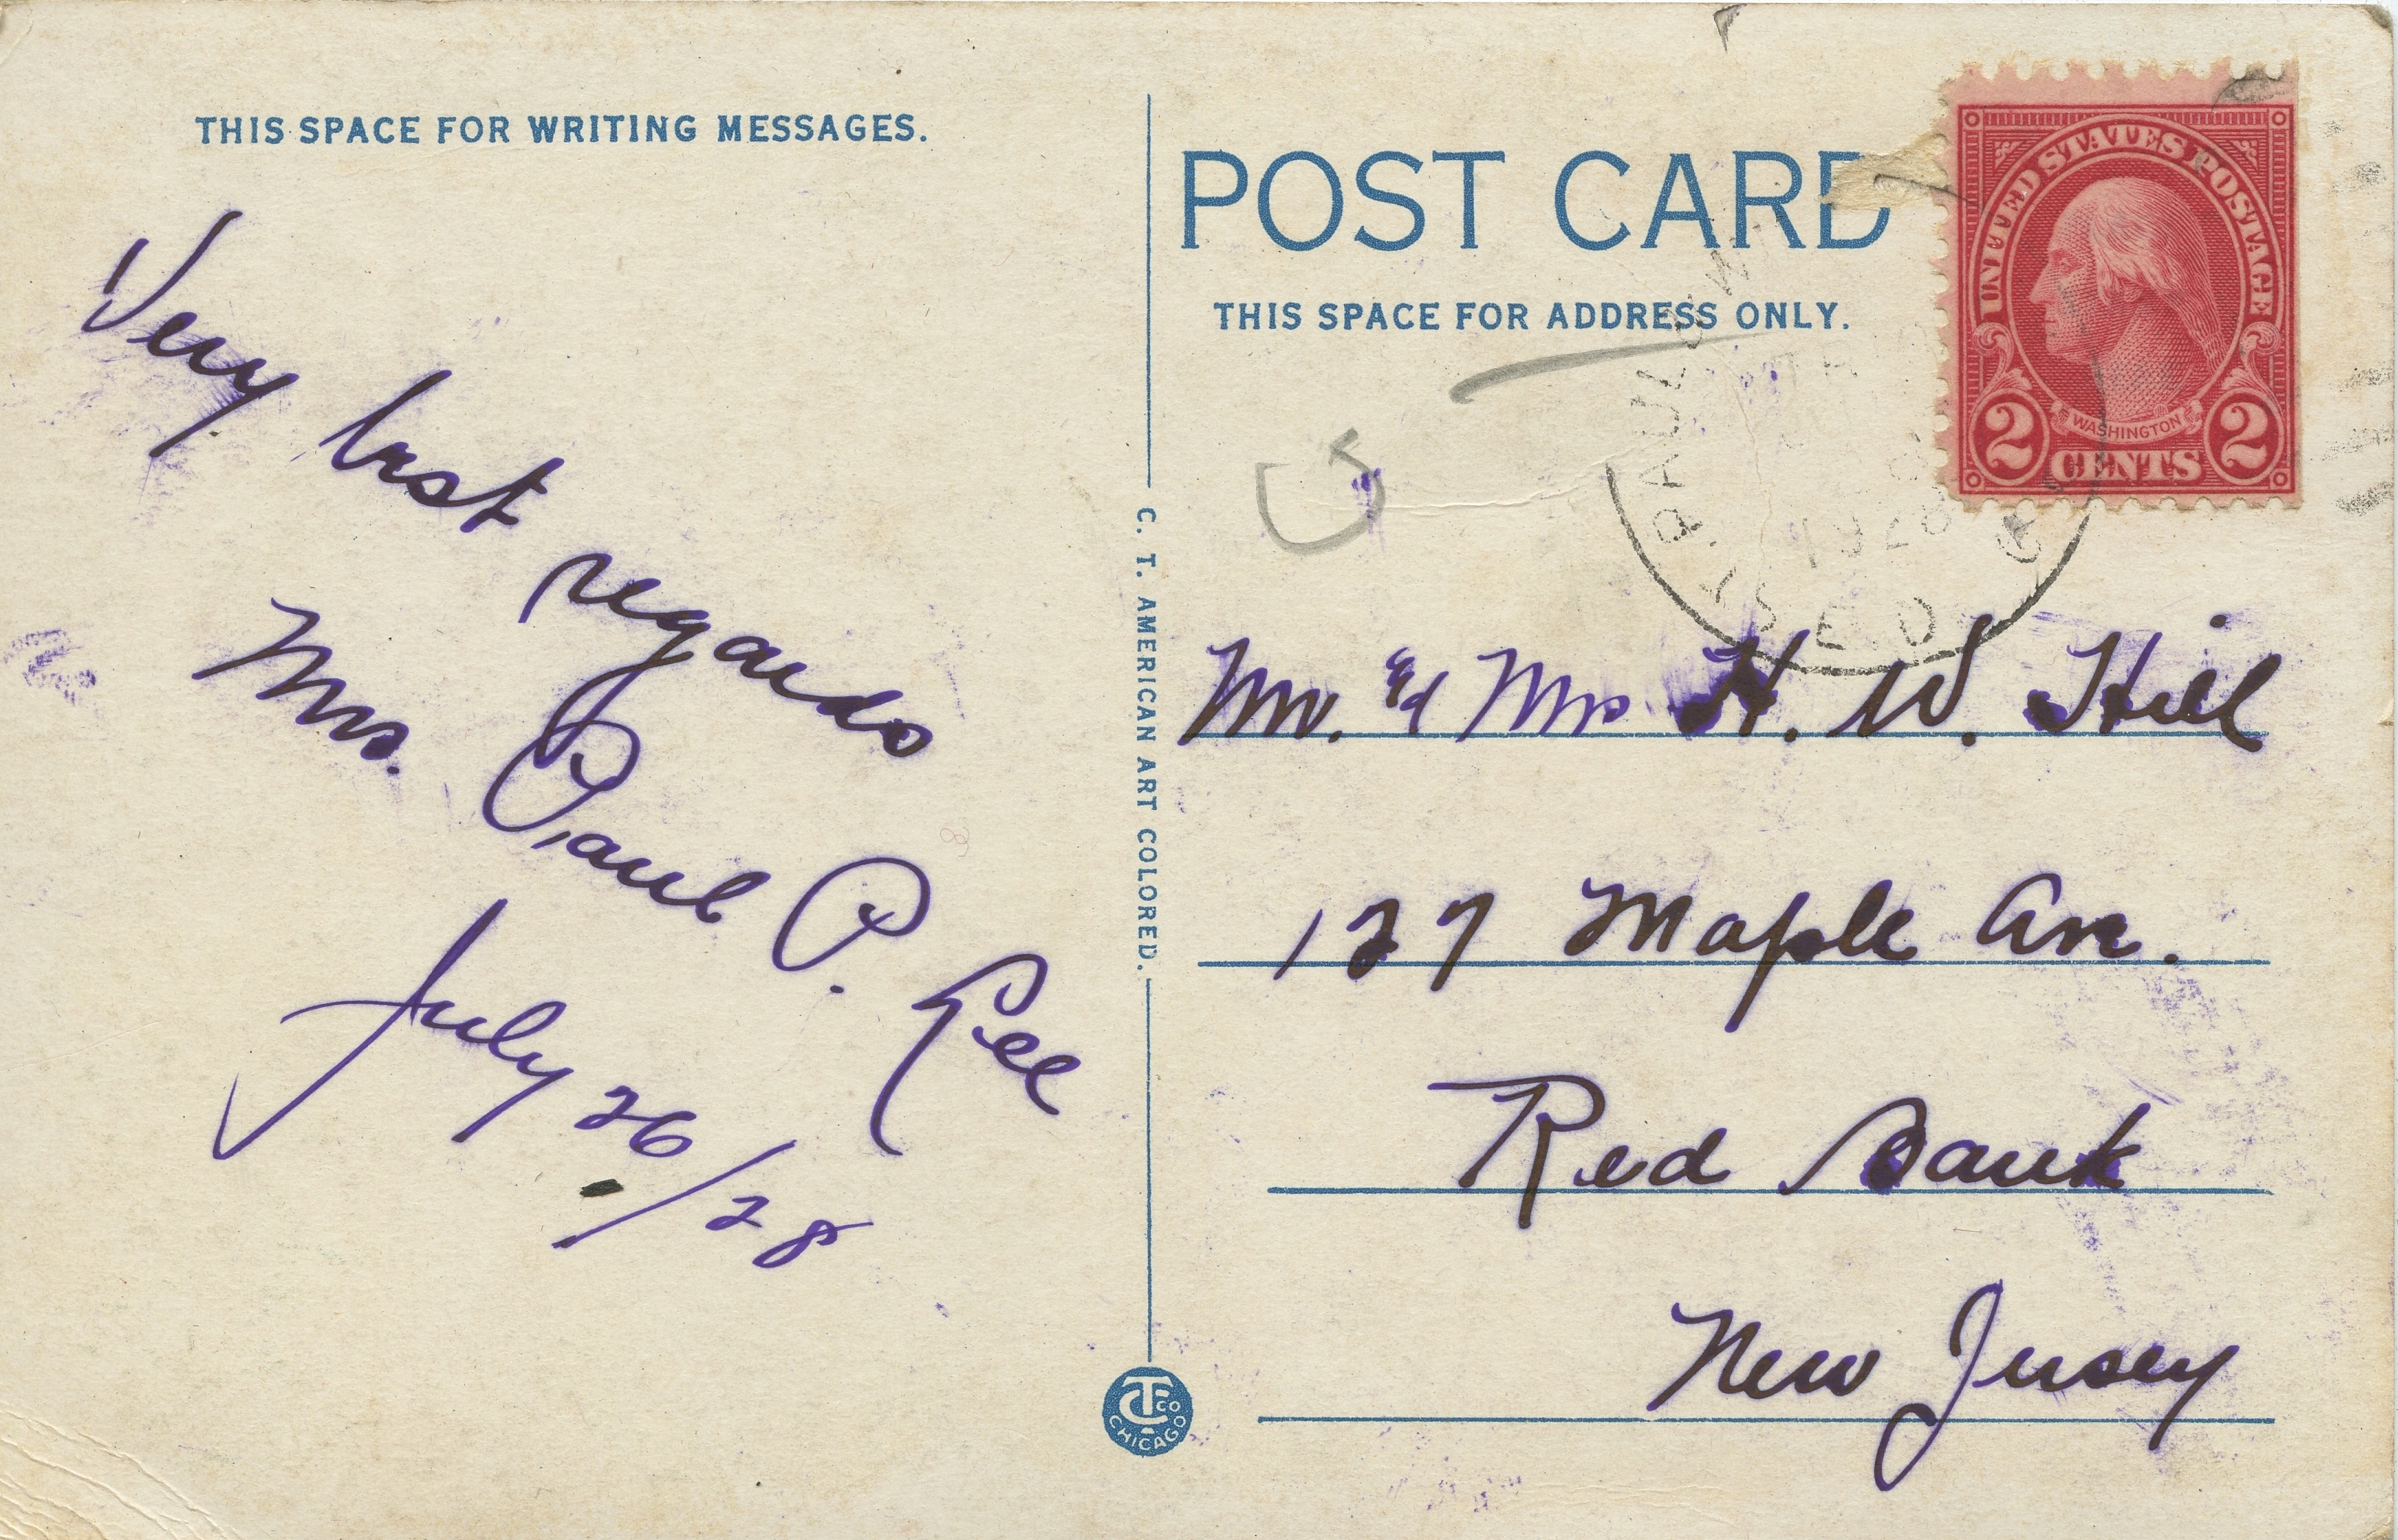 THIS SPACE FOR WRITING MESSAGES.
Very best regards
Mrs. Paul P. Lee
July 26/28
C. T. AMERICAN ART COLORED.
CT CO
CHICAGO
POST CARD
THIS SPACE FOR ADDRESS ONLY.
UNITED STATES POSTAGE
WASHINGTON
2 CENTS 2
ST. PAUL
1928
Mr. & Mrs H. W. Hill
127 Maple Av.
Red Bank
New Jersey